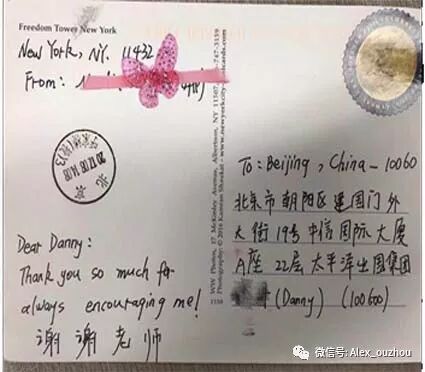 Freedom Tower New York
New York, NY. 11432
From:
Dear Danny:
Thank you so much for
always encouraging me!
谢谢老师
WW Photos, 17 McKinley Avenue, Albertson, NY 11507
Photography: © 2016 Kamran Shaukat - www.newyorkcity-postcards.com
To: Beijing, China - 10060
北京市朝阳区建国门外
大街19号中信国际大厦
A座22层太平洋出国集团
(Danny) (100600)
微信号: Alex_ouzhou